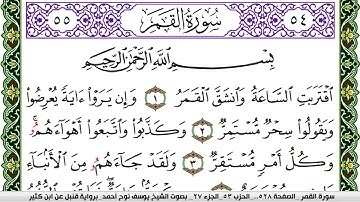 ٥٥ سُورَةُ القَمَرِ ٥٤
بِسْمِ اللَّهِ الرَّحْمَٰنِ الرَّحِيمِ
اقْتَرَبَتِ السَّاعَةُ وَانشَقَّ الْقَمَرُ ١ وَإِن يَرَوْاْ ءَايَةً يُعْرِضُواْ
وَيَقُولُواْ سِحْرٌ مُّسْتَمِرٌّ ٢ وَكَذَّبُواْ وَاتَّبَعُواْ أَهْوَآءَهُمُۥ
وَكُلُّ أَمْرٍ مُّسْتَقِرٌّ ٣ وَلَقَدْ جَآءَهُمُۥ مِنَ الْأَنۢبَآءِ
سورة القمر الصفحة ٥٢٨ الحزب ٥٣ الجزء ٢٧ بصوت الشيخ يوسف نوح أحمد برواية قنبل عن ابن كثير